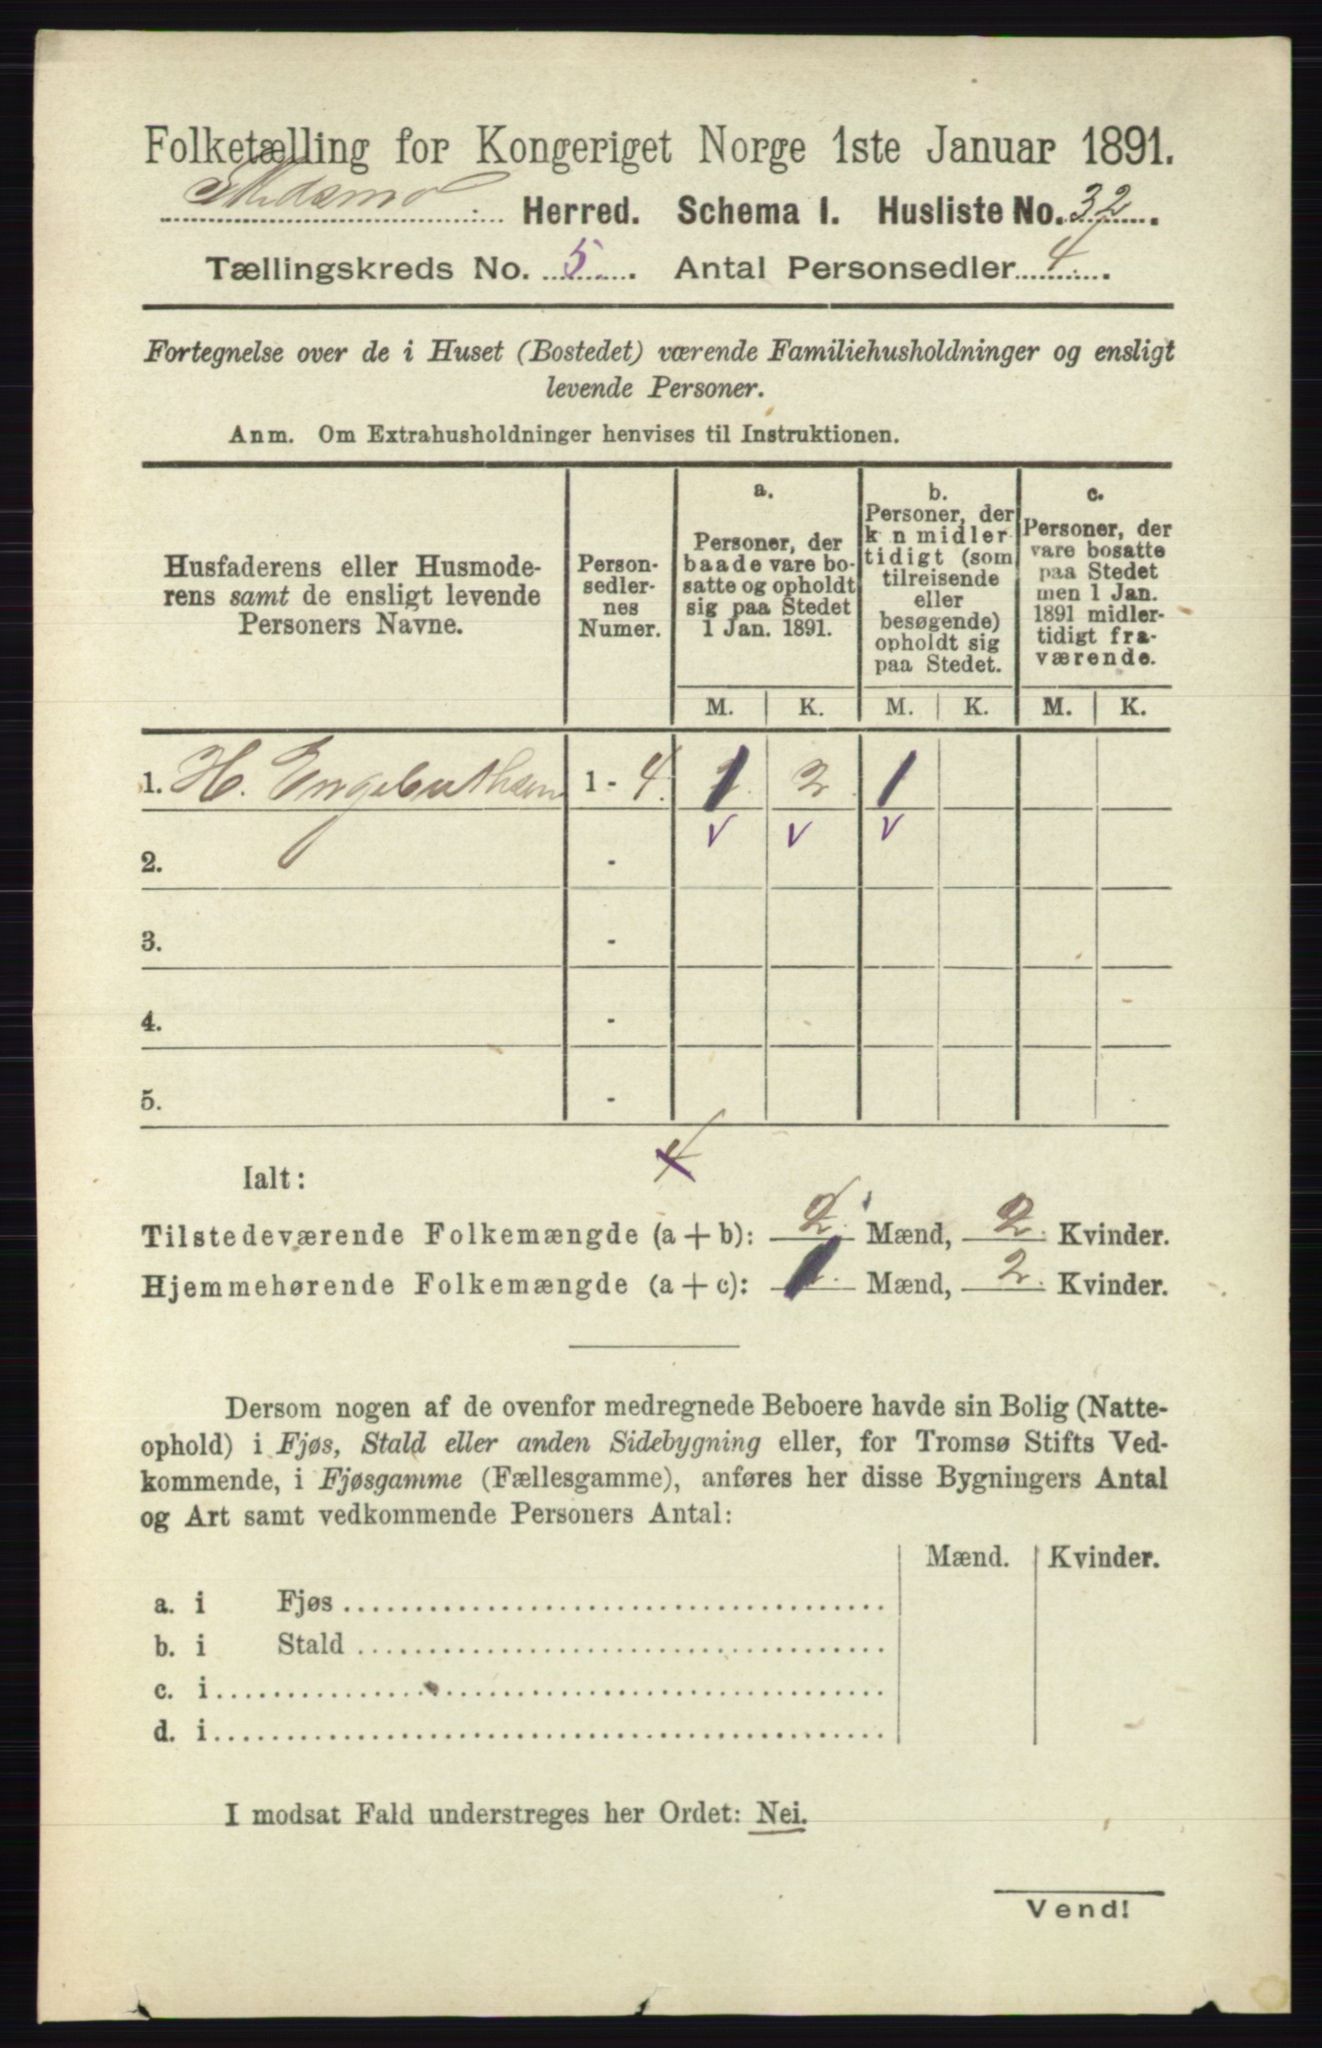 Folketælling for Kongeriget Norge 1ste Januar 1891.
Skedsmo Herred. Schema 1. Husliste No. 32.
Tællingskreds No. 5. Antal Personsedler 4.
Fortegnelse over de i Huset (Bostedet) værende Familiehusholdninger og ensligt
levende Personer.
Anm. Om Extrahusholdninger henvises til Instruktionen.
Husfaderens eller Husmode-
rens samt de ensligt levende
Personers Navne.
Person-
sedler-
nes
Numer.
a.
Personer, der
baade vare bo-
satte og opholdt
sig paa Stedet
1 Jan. 1891.
b.
Personer, der
k n midler
tidigt (som
tilreisende
eller
besøgende)
opholdt sig
paa Stedet.
c.
Personer, der
vare bosatte
paa Stedet
men 1 Jan.
1891 midler-
tidigt fra-
værende.
M. K. M. K. M. K.
1. H. Engebrethsen 1 - 4. 1 2 1
v v v
2. -
3. -
4. -
5. -
4
Ialt:
Tilstedeværende Folkemængde (a + b): 2. Mænd, 2. Kvinder.
Hjemmehørende Folkemængde (a + c): 1. Mænd, 2. Kvinder.
Dersom nogen af de ovenfor medregnede Beboere havde sin Bolig (Natte-
ophold) i Fjøs, Stald eller anden Sidebygning eller, for Tromsø Stifts Ved-
kommende, i Fjøsgamme (Fællesgamme), anføres her disse Bygningers Antal
og Art samt vedkommende Personers Antal:
Mænd. Kvinder.
a. i Fjøs
b. i Stald
c. i
d. i
I modsat Fald understreges her Ordet: Nei.
Vend!